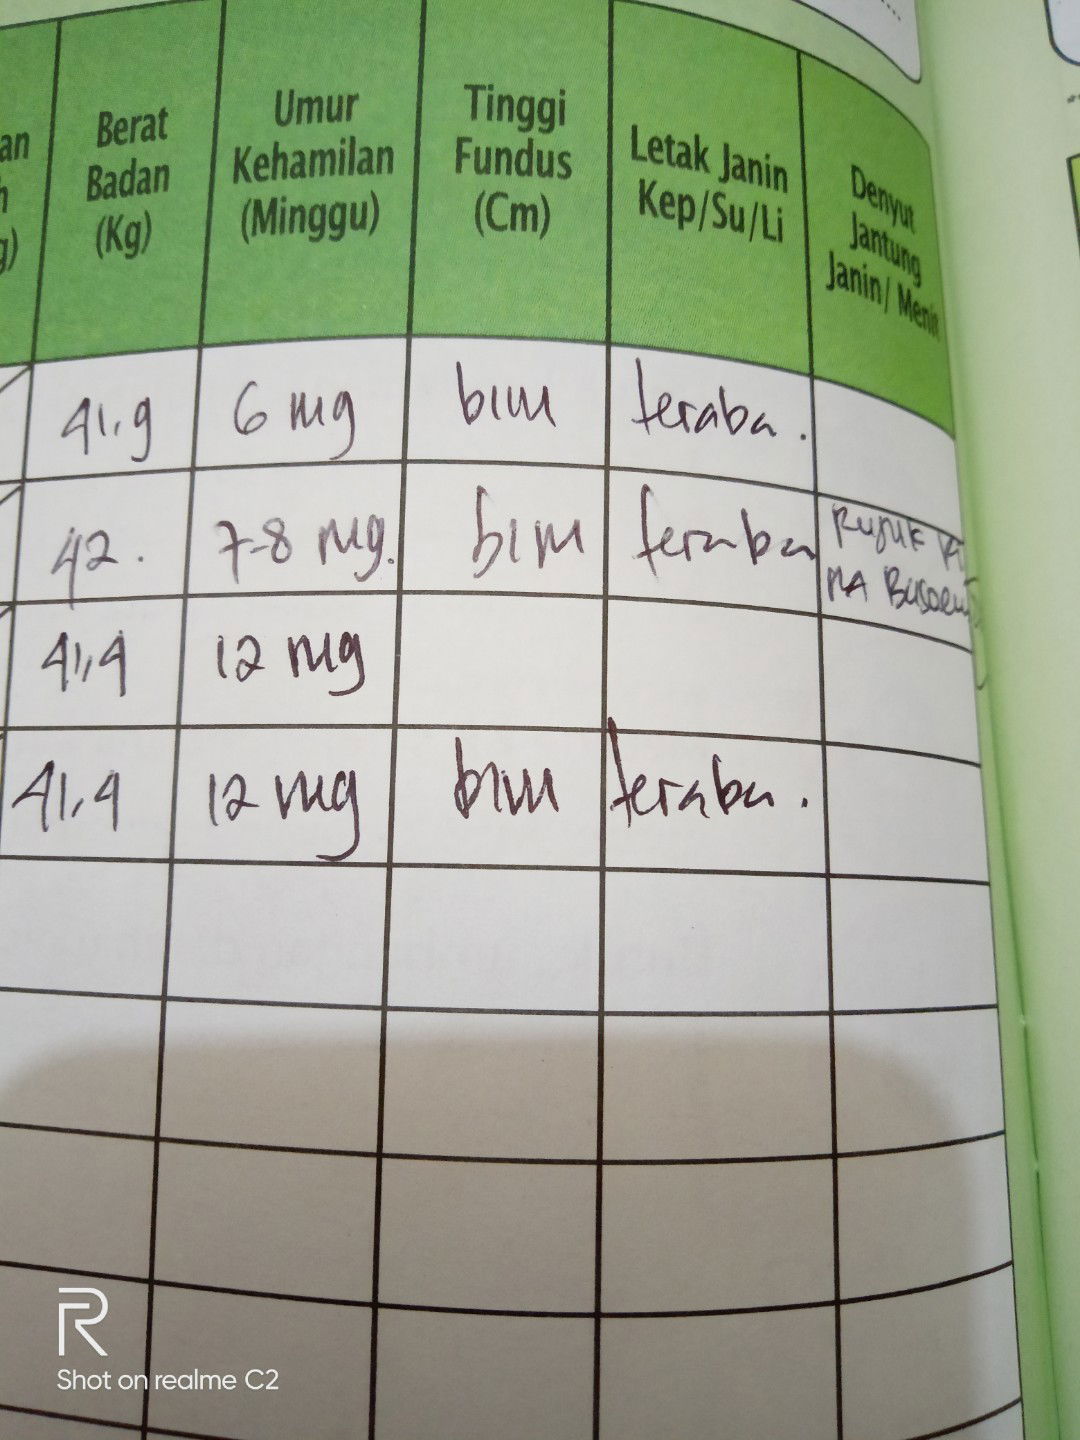 an
h
g)
Berat
Badan
(Kg)
Umur
Kehamilan
(Minggu)
Tinggi
Fundus
(Cm)
Letak Janin
Kep/Su/Li
Denyut
Jantung
Janin/ Menit
41,9 6 mg blm teraba.
42. 7-8 mg. blm teraba Rujuk
41,4 12 mg
41,4 12 mg blm teraba.
R
Shot on realme C2